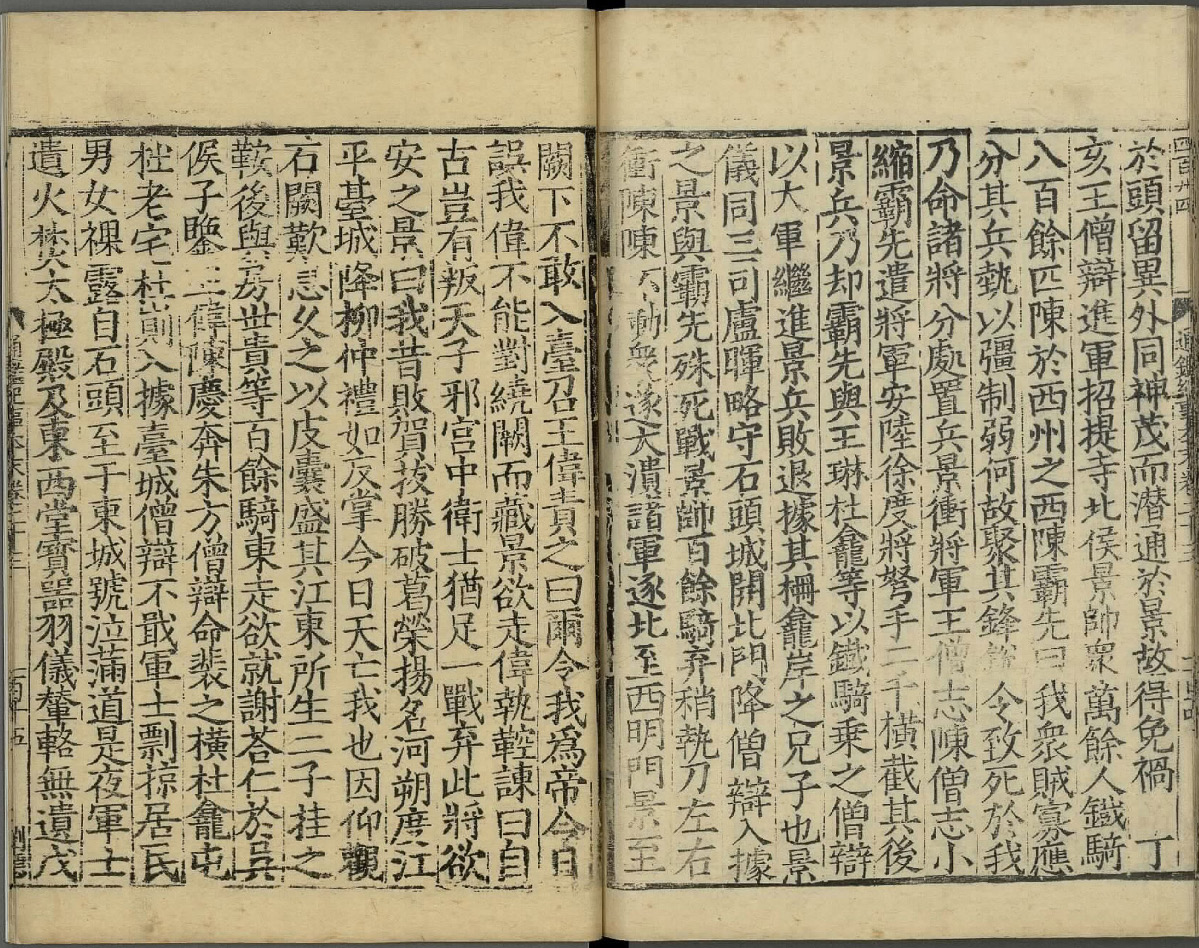 於頭留異外同神茂而潜通於景故得免禍　丁
亥王僧辯進軍招提寺北侯景帥衆萬餘人鐵騎
八百餘匹陳於西州之西陳霸先曰我衆賊寡應
分其兵埶以彊制弱何故聚其鋒令致死於我
乃命諸將分處置兵景衝將軍王僧志陳僧志小
縮霸先遣將軍安陸徐度將弩手二千横截其後
景兵乃却霸先與王琳杜龕等以鐵騎乗之僧辯
以大軍繼進景兵敗退據其柵龕岸之兄子也景
儀同三司盧暉略守石頭城開北門降僧辯入據
之景與霸先殊死戰景帥百餘騎弃矟執刀左右
衝陳陳不動衆遂大潰諸軍逐北至西明門景至
闕下不敢入臺召王偉責之曰爾令我爲帝今日
誤我偉不能對繞闕而藏景欲走偉執鞚諫曰自
古豈有叛天子邪宫中衛士猶足一戰弃此將欲
安之景曰我昔敗賀拔勝破葛榮揚名河朔度江
平臺城降柳仲禮如反掌今日天亡我也因仰觀
石闕歎息久之以皮囊盛其江東所生二子挂之
鞍後與房世貴等百餘騎東走欲就謝荅仁於吳
侯子鑒王偉陳慶奔朱方僧辯命裴之横杜龕屯
杜老宅杜崱入據臺城僧辯不戢軍士剽掠居民
男女裸露自石頭至于東城號泣滿道是夜軍士
遺火焚太極殿及東西堂寶器羽儀輦輅無遺戊
通鑑紀事本末卷二十三